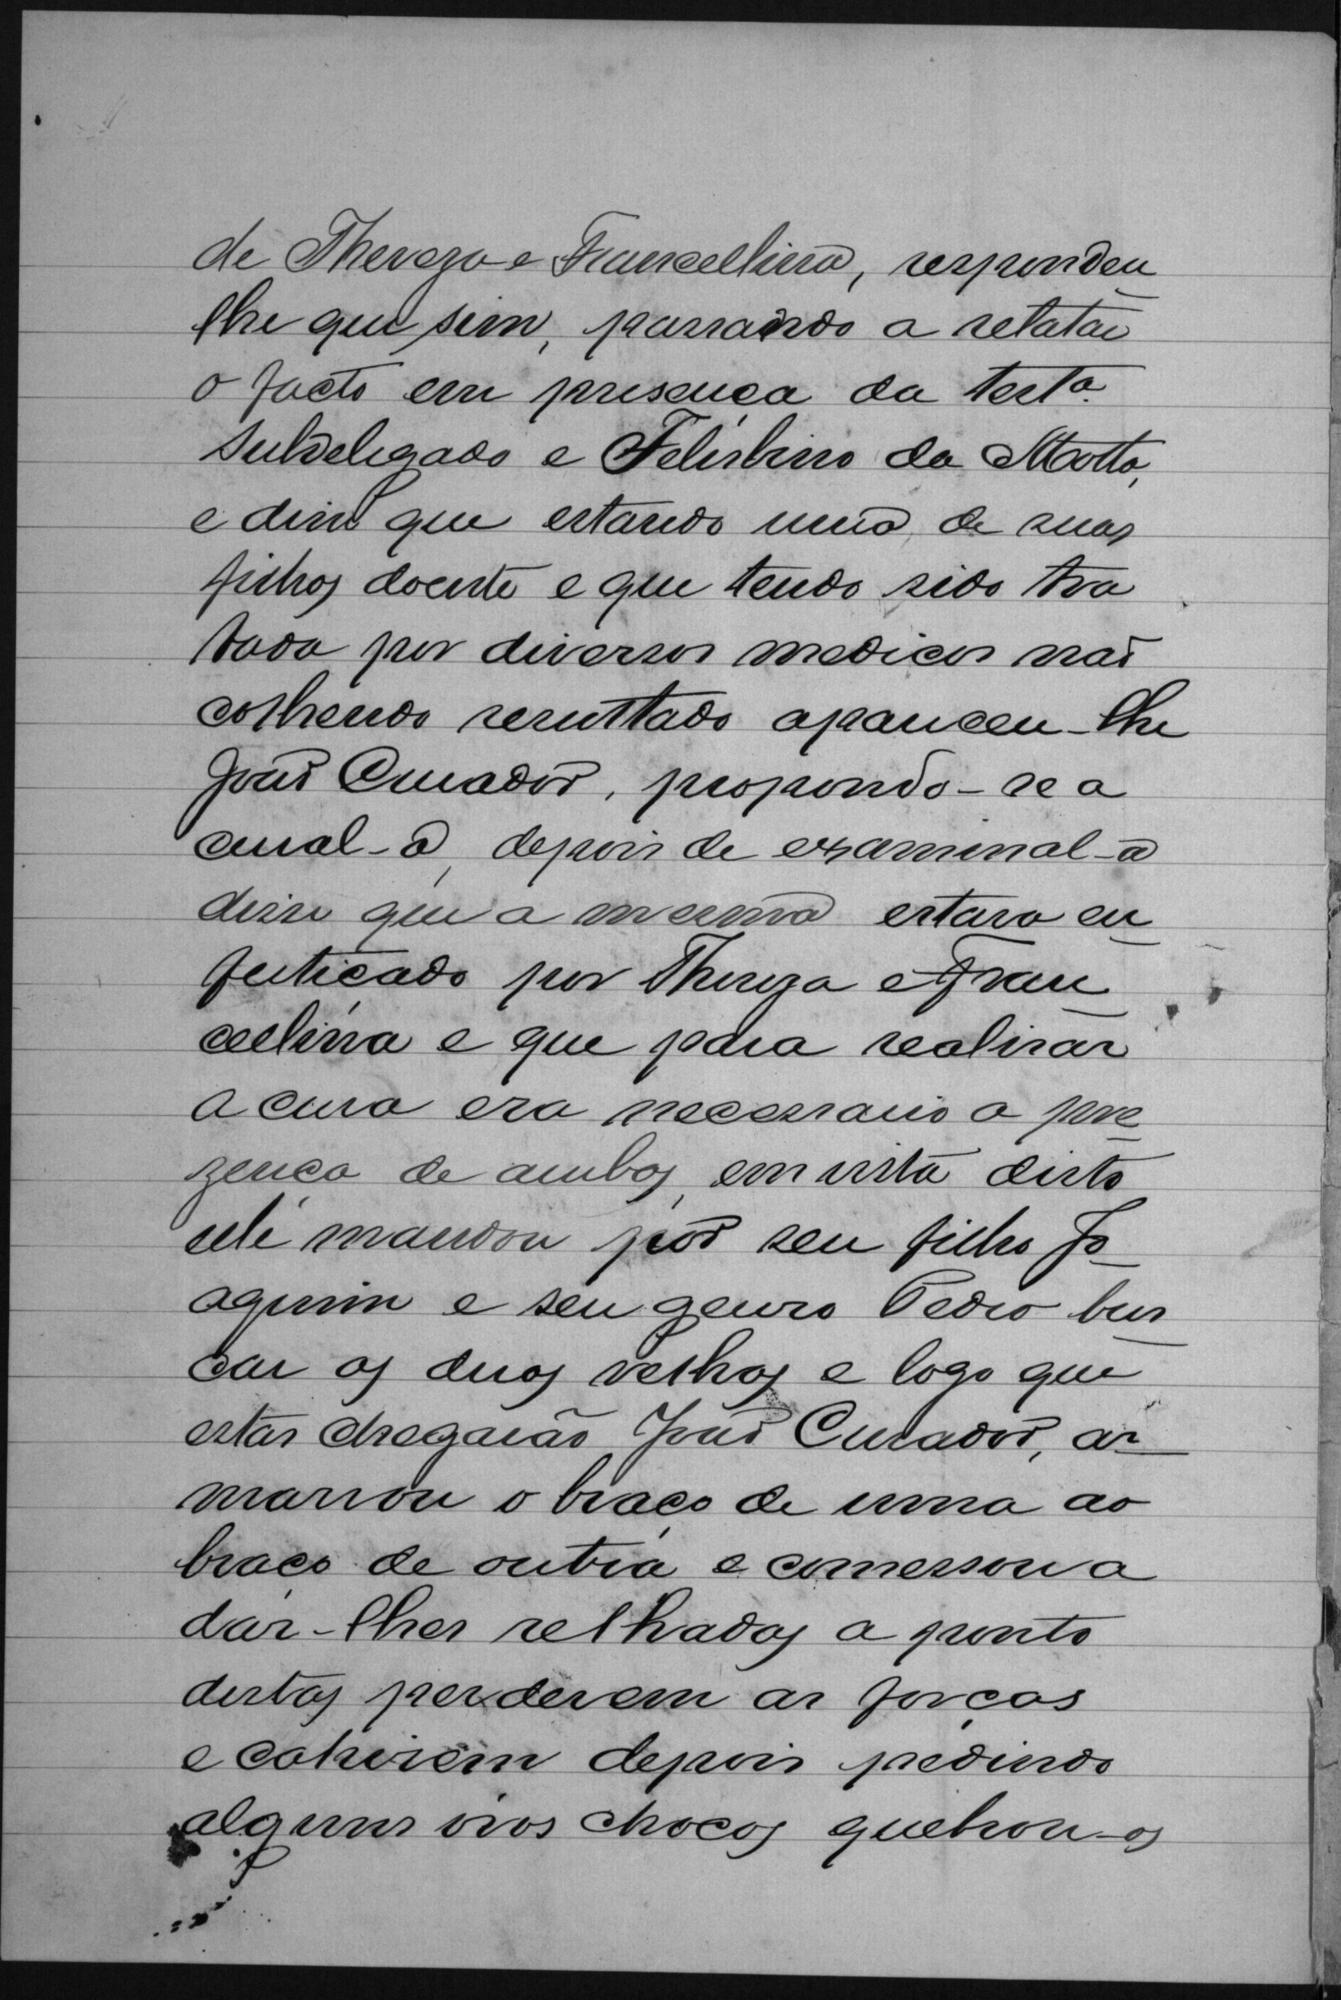 de Thereza e Francellina, respondeu
lhe que sim, passando a relatar
o facto em presença da testa.
subdelegado e Felisbino da Motta,
e disse que estando uma de suas
filhas doente e que tendo sido tra
tada por diversos medicos não
colhendo resultado apareceu-lhe
João Curador, propondo-se a
cural-a, depois de examinal-a
disse que a mesma estava en
feitiçada por Thereza e Fran
cellina e que para realisar
a cura era necessario a pre
zença de ambas, em vista disto
elle mandou por seu filho Jo
aquim e seu genro Pedro bus
car as duas velhas e logo que
estas chegarão João Curador, a
marrou o braço de uma ao
braço de outra e comessou a
dar-lhes relhadas a ponto
destas perderem as forças
e cahirem depois pedindo
alguns ovos chocos quebrou-os